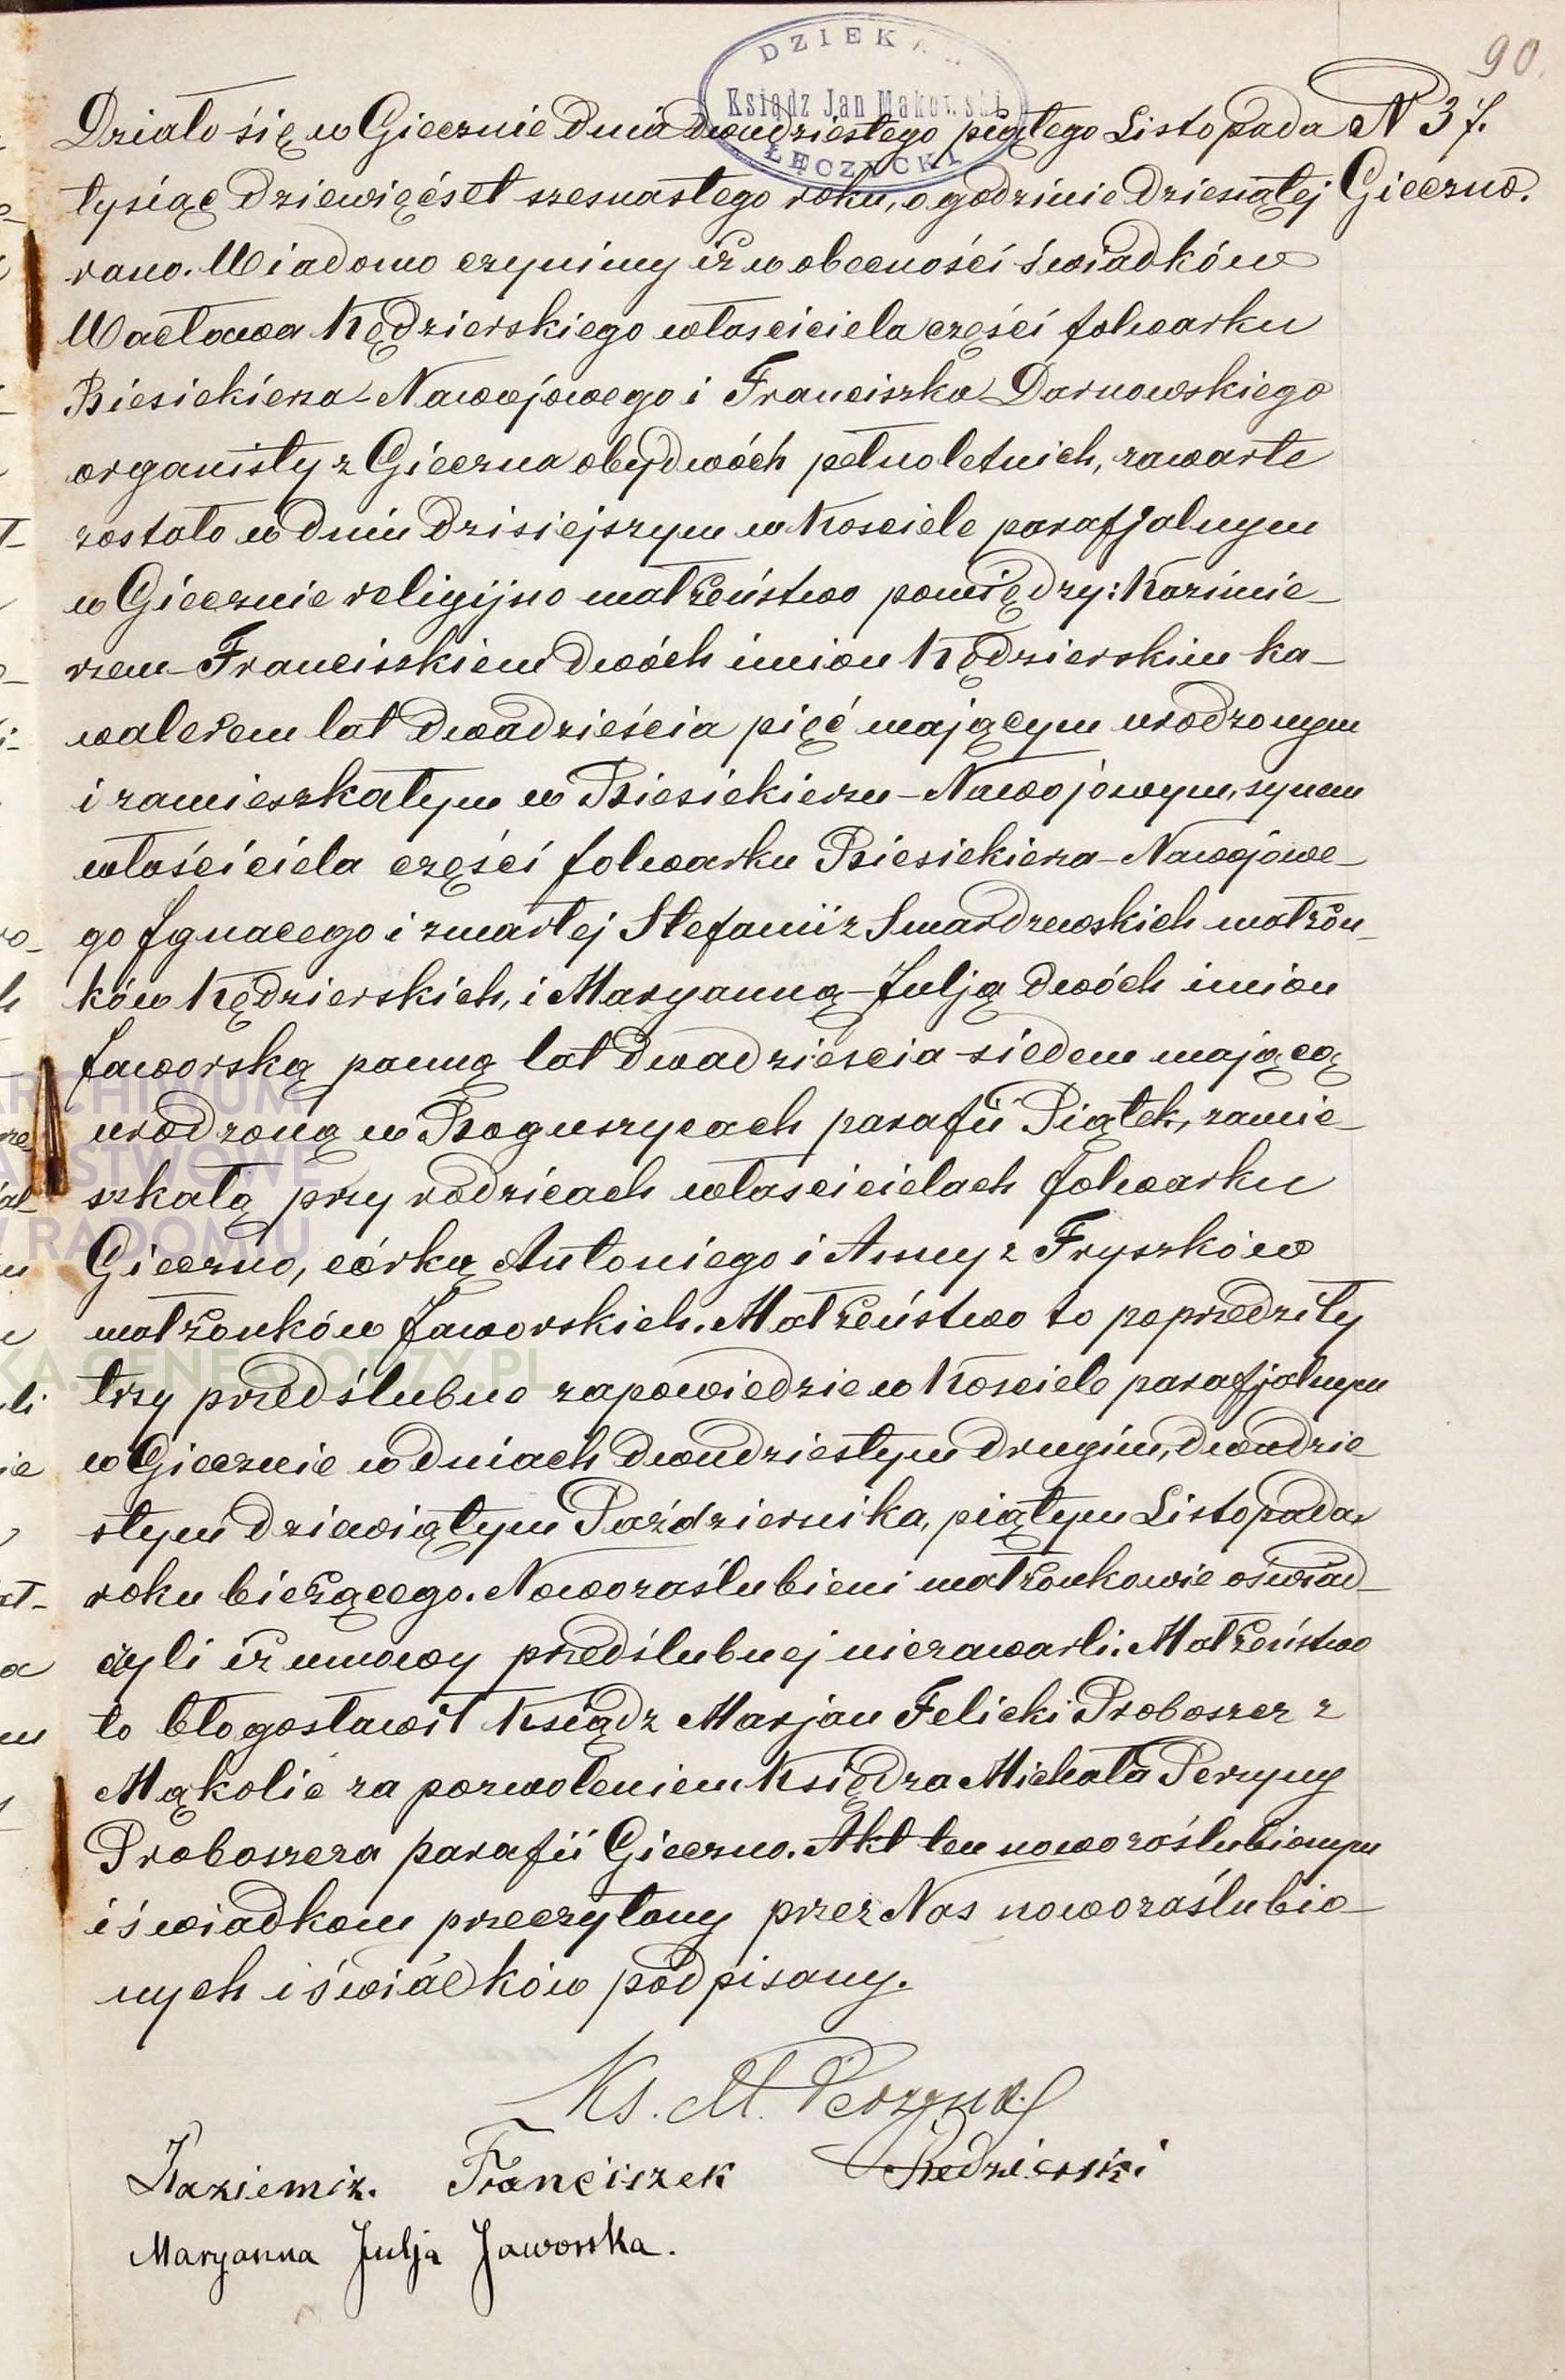 90.
DZIEKAN
Ksiądz Jan Makowski
ŁĘCZYCKI
Działo się w Giecznie dnia dwudziestego piątego Listopada
N 37.
tysiąc dziewięćset szesnastego roku, o godzinie dziesiątej
Gieczno.
rano. Wiadomo czynimy iż w obecności świadków
Wacława Kędzierskiego właściciela części folwarku
Biesiekierza-Nawojowego i Franciszka Darnowskiego
organisty z Gieczna obydwóch pełnoletnich, zawarte
zostało w dniu dzisiejszym w Kosciele parafjalnym
w Giecznie religijno małżeństwo pomiędzy: Kazimie-
rzem-Franciszkiem dwóch imion Kędzierskim ka-
walerem lat dwadzieścia pięć mającym urodzonym
i zamieszkałym w Biesiekierzu-Nawojowym, synem
właściciela części folwarku Biesiekierza-Nawojowe-
go Ignacego i zmarłej Stefanii z Smardzewskich małżon-
ków Kędzierskich, i Maryanną-Julją dwóch imion
Jaworską panną lat dwadzieścia-siedem mającą
urodzoną w Boguszycach parafii Piątek, zamie-
szkałą przy rodzicach właścicielach folwarku
Gieczno, córką Antoniego i Anny z Fryszków
małżonków Jaworskich. Małżeństwo to poprzedziły
trzy przedślubne zapowiedzie w Kosciele parafjalnym
w Giecznie w dniach dwudziestym drugim, dwudzie
stym dziewiątym Października, piątym Listopada
roku bieżącego. Nowozaślubieni małżonkowie oświad-
czyli iż umowy przedślubnej niezawarli. Małżeństwo
to błogosławił Ksiądz Marjan Felicki Proboszcz z
Mąkolic za pozwoleniem Księdza Michała Perzyny
Proboszcza parafii Gieczno. Akt ten nowozaślubionym
i świadkom przeczytany przez Nas nowozaślubio-
nych i świadków podpisany.
Ks. M. Perzyna
Kaziemiz. Franciszek Kedzierski
Maryanna Julja Jaworska.
ARCHIWUM
PAŃSTWOWE
W RADOMIU